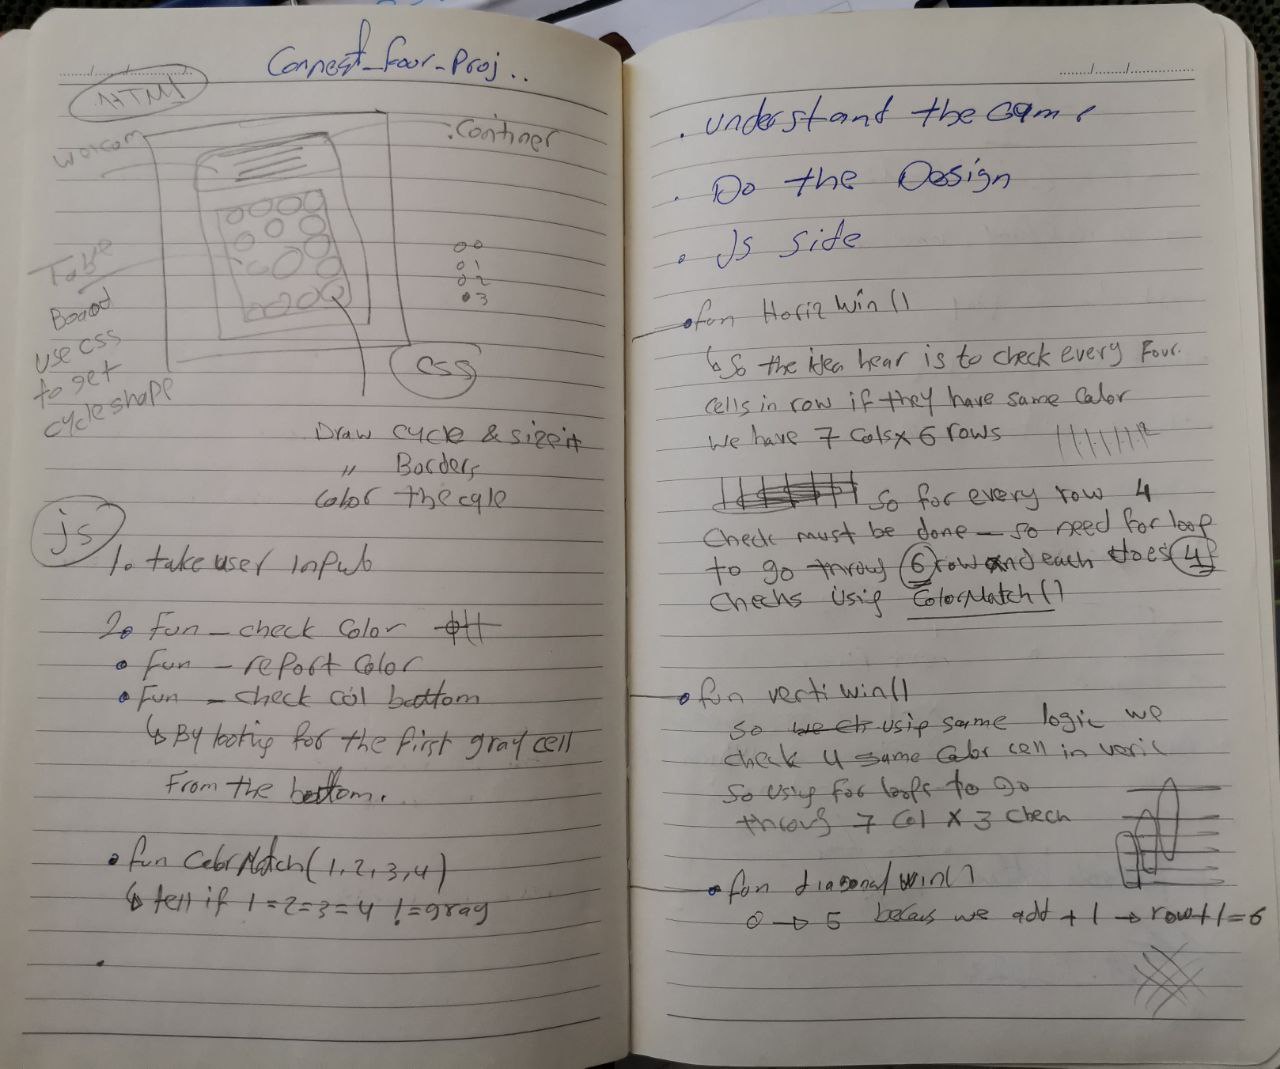 Connect_four_Proj..
HTMl
.Continer
Welcom
Table
Board
use css
to get
cycle shape
0 0
0 1
0 2
3
CSS
Draw cycle & size it
" Borders
Color the cycle
js
1. take user input
2. Fun - check Color
• Fun - report Color
• Fun - check col bottom
↳ By looking for the first gray cell
From the bottom.
• fun ColorMatch(1,2,3,4)
↳ tell if 1=2=3=4 !=gray
. understand the Game
. Do the Design
. Js side
• fun HorizWin()
↳ So the idea hear is to check every Four
cells in row if they have same Color
we have 7 cols x 6 rows
so for every row 4
Check must be done – so need for loop
to go throw 6 row and each does 4
Checks Using ColorMatch()
• fun vertiWin()
so using same logic we
check 4 same Color cell in
so using for loops to go
throug 7 Col X 3 Check
• fun diagonalWin()
0 → 5 becaus we add +1 → row+1=6